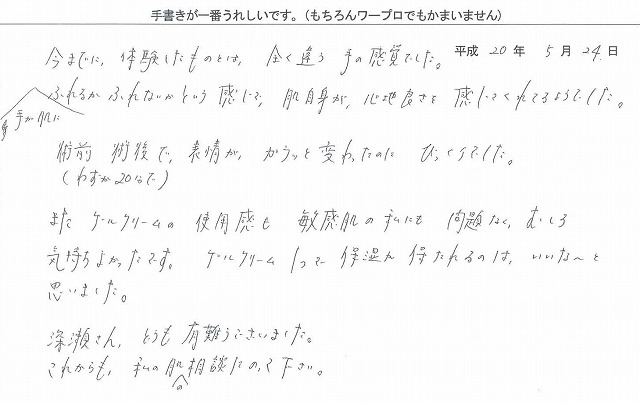 手書きが一番うれしいです。(もちろんワープロでもかまいません)
平成 20 年 5 月 24 日
今までに、体験したものとは、全く違う 手の感覚でした。
手が肌に
ふれるか ふれないかという 感じで、肌自身が、心地良さを 感じてくれてるようでした。
術前 術後で、表情が、ガラッと変わったのに びっくりでした。
(わずか20分で)
また ゲルクリームの 使用感も 敏感肌の私にも 問題なく、むしろ
気持ちよかったです。 ゲルクリーム 1つで 保湿が 得られるのは、いいな〜と
思いました。
深瀬さん、どうも 有難うございました。
これからも、私の肌の相談にのって下さい。